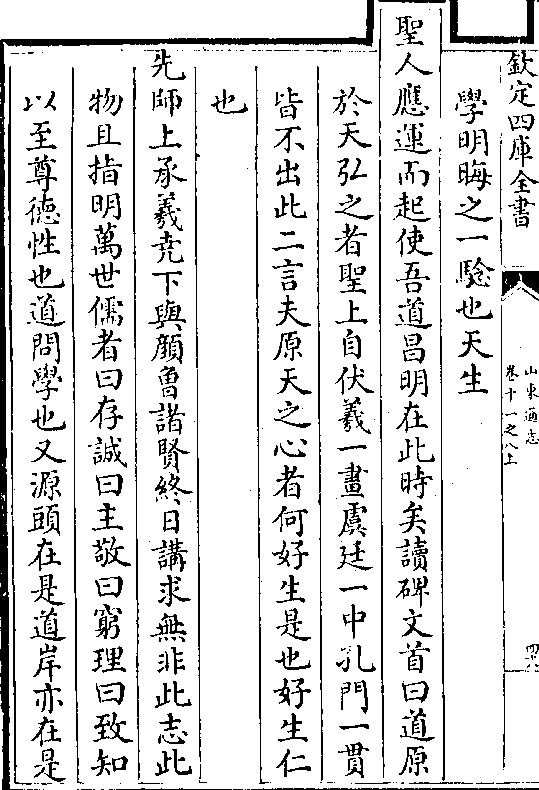 欽定四庫全書
山東通志
卷十一之八上
四十八
學明晦之一驗也天生
聖人應運而起使吾道昌明在此時矣讀碑文首曰道原
於天弘之者聖上自伏羲一畫虞廷一中孔門一貫
皆不出此二言夫原天之心者何好生是也好生仁
也
先師上承羲堯下與顏魯諸賢終日講求無非此志此
物且指明萬世儒者曰存誠曰主敬曰窮理曰致知
以至尊德性也道問學也又源頭在是道岸亦在是